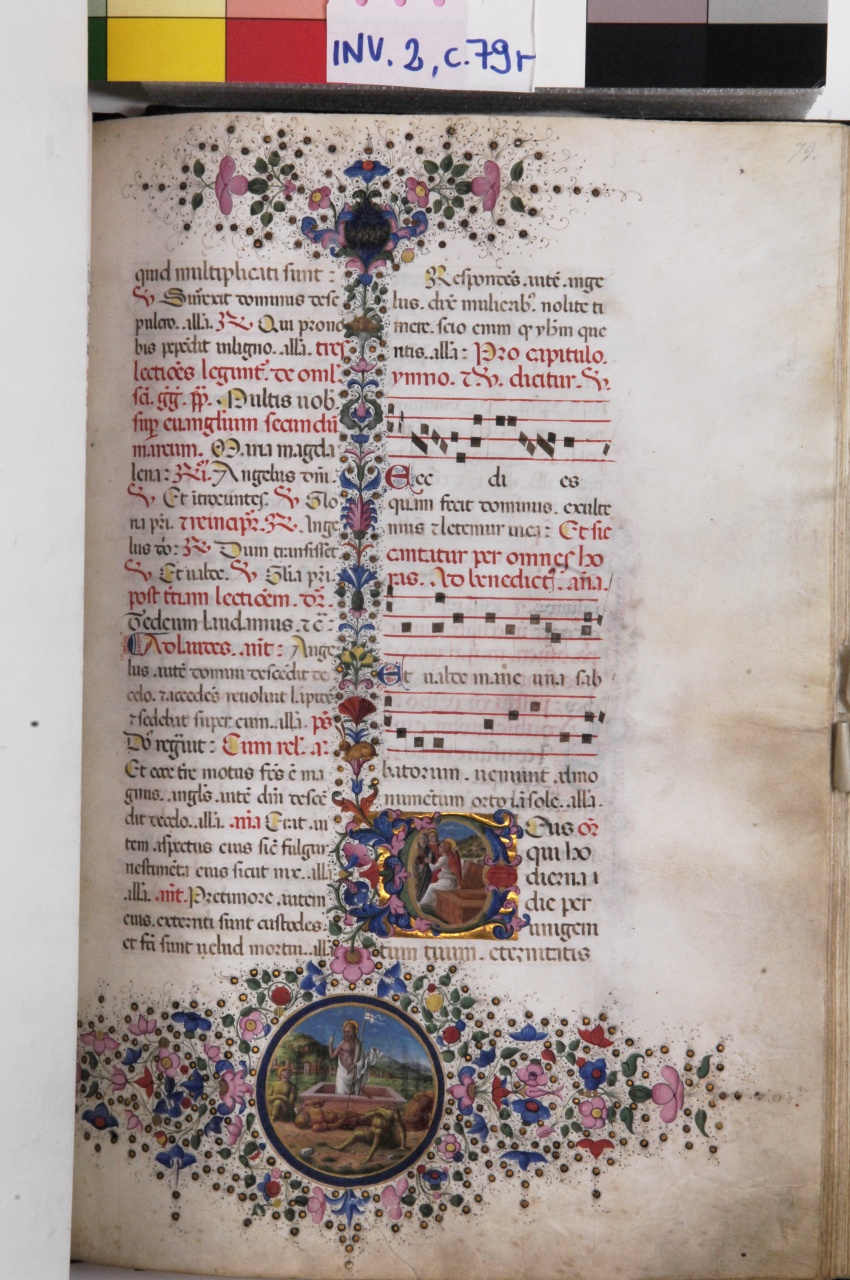 INV. 2, c. 79r
79.
quid multiplicati sunt :
℣ Surrexit dominus de se
pulcro. alla. ℟ Qui pro no
bis pepēdit in ligno. alla. tres
lectiōes legunt̄. de omīl'
sc̄i. gg. pp̄. Multis uob̄
sup euangliūm secundū
marcum. Maria magda
lena : ℟. Angelus dn̄i.
℣ Et ītroeuntes. ℣ Glo
ria pr̄i. ⁊ reincipr̄. ℟. Ange
lus dn̄i : ℟ Dum transisset
℣ Et ualde. ℣ Glia pr̄i.
post tertiam lectiōem. dr̄.
Te deum laudamus. ⁊ c̄ :
Ad laudes. an̄t : Ange
lus autē domini descēdit de
celo. ⁊ accedēs reuoluit lapidē
⁊ sedebat super eum. alla. ps̄
Dn̄s regnāuit : Cum rel'. a.
Et ecce tre motus fc̄s ē ma
gnus. angl̄s autē dn̄i descē
dit de celo. alla. an̄a Erat au
tem aspectus eius sic̄ fulgur
uestimēta eius sicut nix. alla
alla. an̄t. Pre timore autem
eius. exterriti sunt custodes.
et fc̄i sunt uelud mortui. alla
Respondēs autē ange
lus. dix̄ mulierib⁹. nolite ti
mere. scio enim q̄ yhm̄ que
ritis. alla : Pro capitulo.
ymno. ⁊ ℣. dicitur. ℣.
Hec di es
quam fecit dominus. exulte
mus ⁊ letemur in ea : Et sic
cantatur per omnes ho
ras. Ad benedict⁹. an̄a.
Et ualde mane una sab
batorum. ueniunt ad mo
numētum orto iā sole. alla.
Deus or̄
qui ho
dierna
die per
unigeni
tum tuum. eternitatis